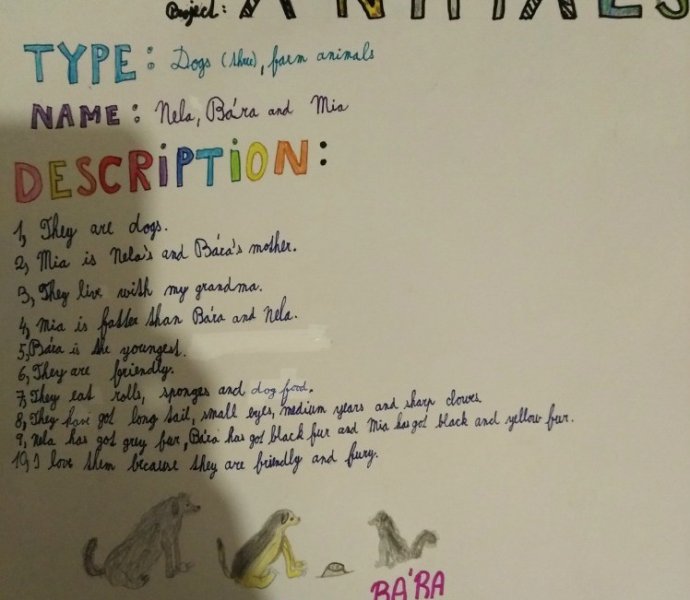 Project: ANIMALS
TYPE: Dogs (three), farm animals
NAME: Nela, Bára and Mia
DESCRIPTION:
1, They are dogs.
2, Mia is Nela's and Bára's mother.
3, They live with my grandma.
4, Mia is fatter than Bára and Nela.
5, Bára is the youngest.
6, They are friendly.
7, They eat rolls, sponges and dog food.
8, They have got long tail, small eyes, medium years and sharp clows.
9, Nela has got grey fur, Bára has got black fur and Mia has got black and yellow fur.
10, I love them because they are friendly and fury.
BÁRA